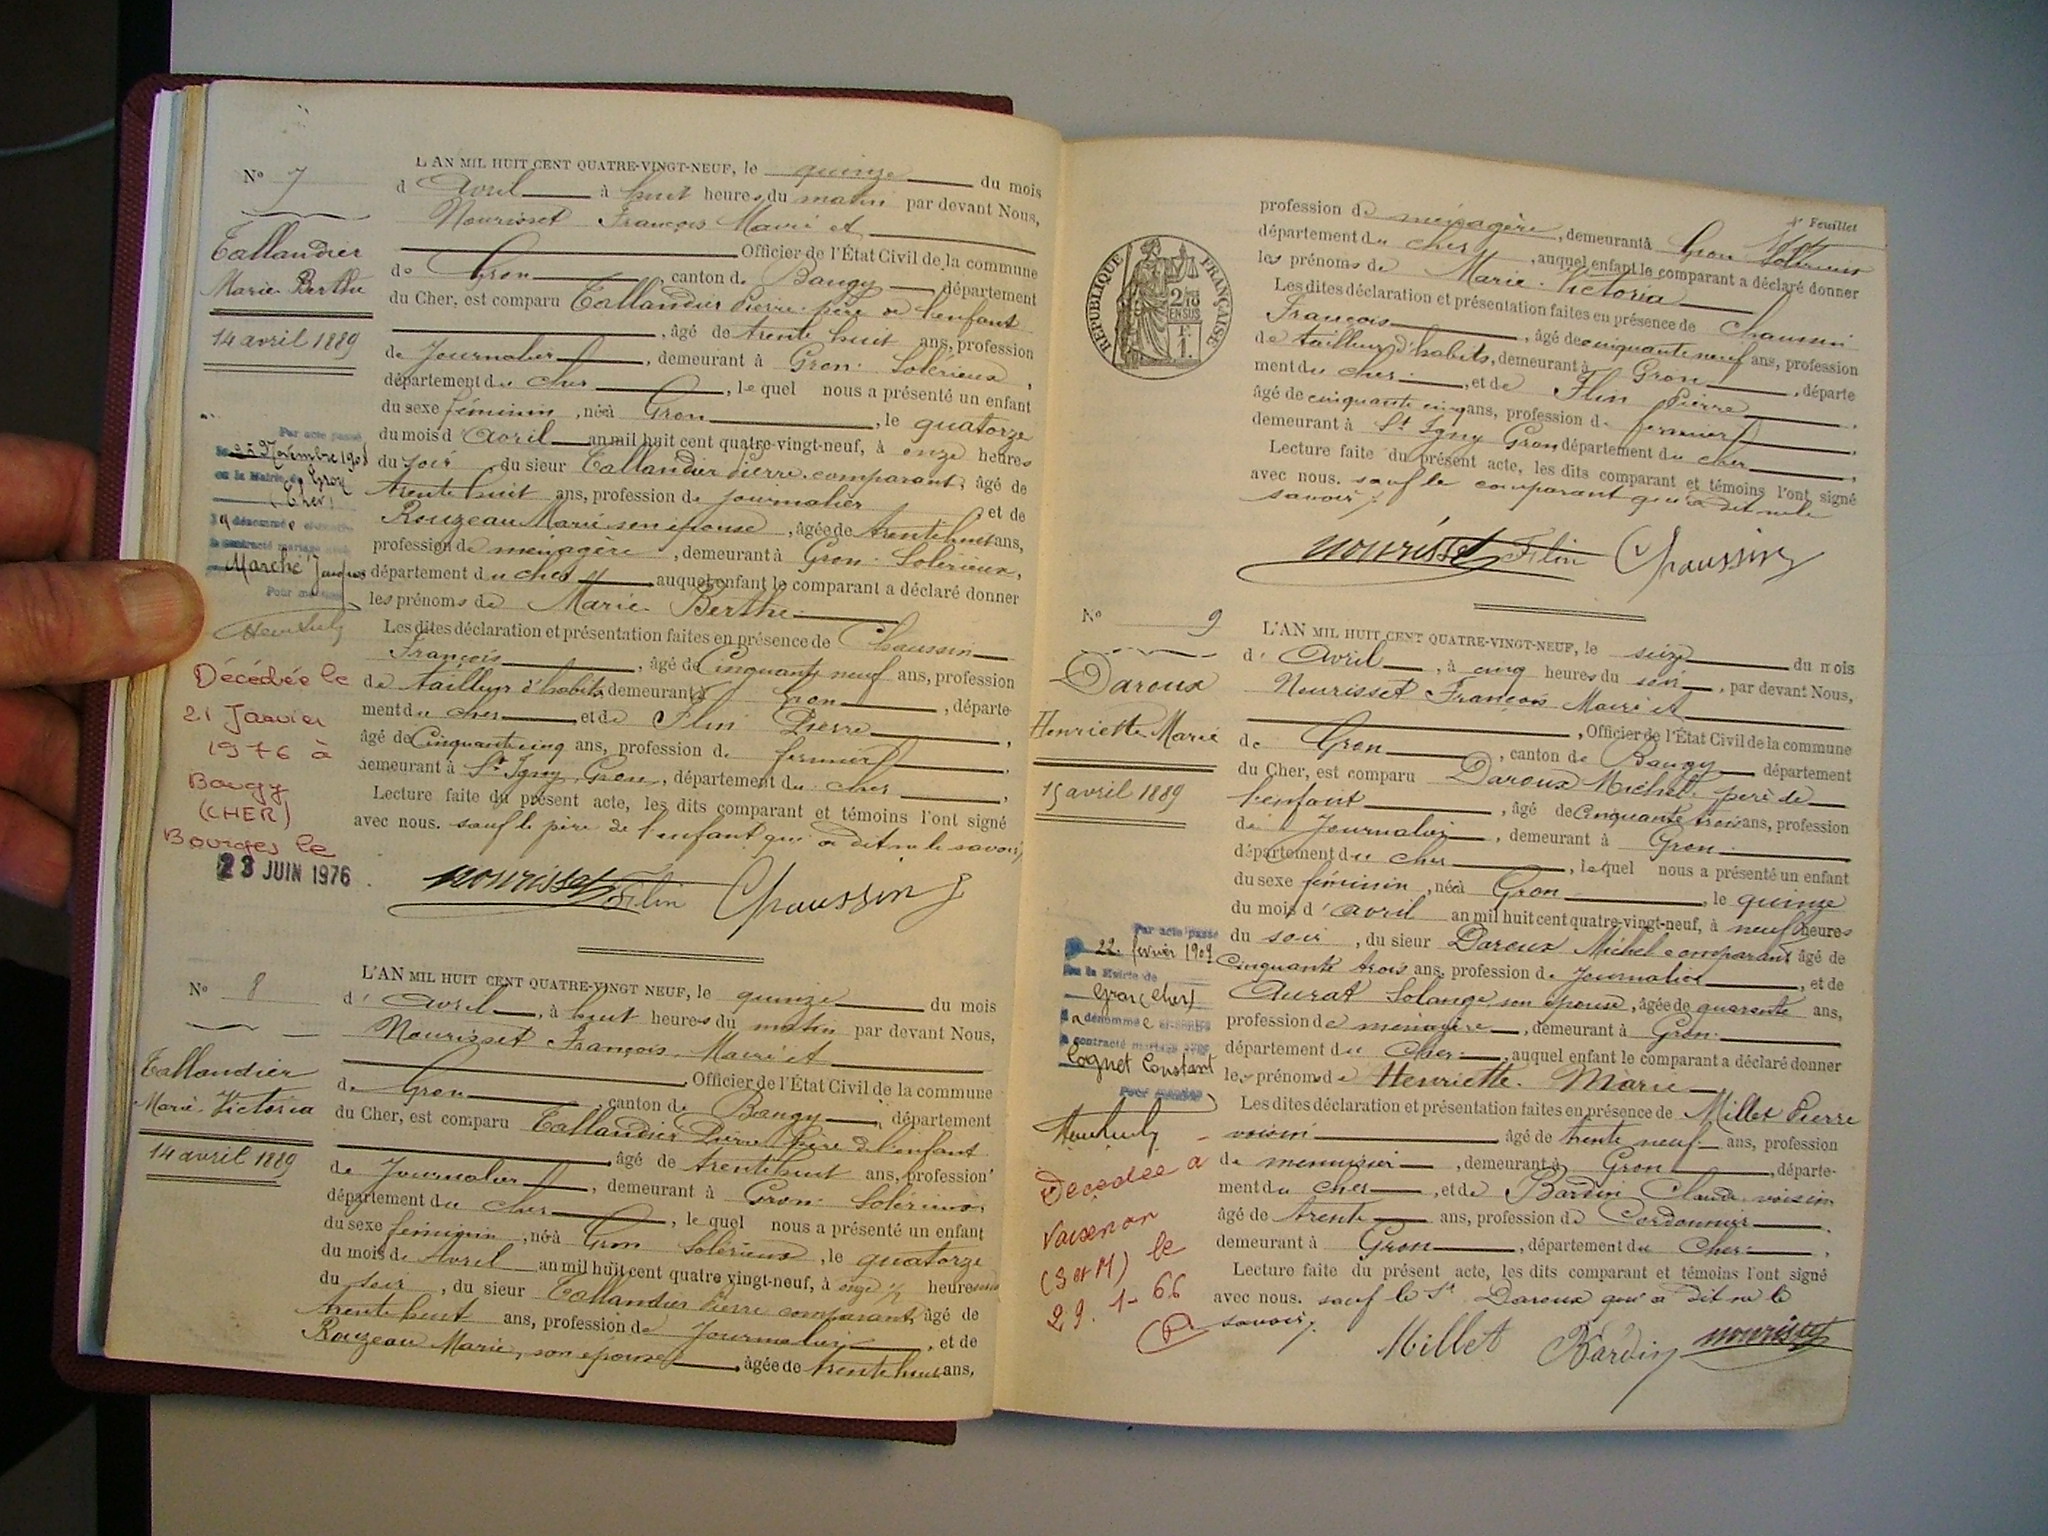 N° 7
Tallandier
Marie Berthe
14 avril 1889
Par acte passé
le 25 Novembre 1908
en la Mairie de Gron
(Cher)
la dénommée ci-contre
a contracté mariage avec
Marché Jacques
Pour mention
Décédée le
21 Janvier
1976 à
Baugy
(CHER)
Bourges le
23 JUIN 1976
L'AN MIL HUIT CENT QUATRE-VINGT-NEUF, le quinze du mois
d Avril à huit heures du matin par devant Nous,
Nourisset François Maire et
Officier de l'État Civil de la commune
de Gron canton de Baugy, département
du Cher, est comparu Tallandier Pierre père de l'enfant
, âgé de trente huit ans, profession
de Journalier, demeurant à Gron Solérieux,
département du cher, le quel nous a présenté un enfant
du sexe féminin, née à Gron, le quatorze
du mois d'avril an mil huit cent quatre-vingt-neuf, à onze heures
du soir du sieur Tallandier Pierre comparant, âgé de
trente huit ans, profession de journalier et de
Rouzeau Marie son épouse, âgée de trente huit ans,
profession de ménagère, demeurant à Gron Solérieux,
département du cher auquel enfant le comparant a déclaré donner
les prénoms de Marie Berthe
Les dites déclaration et présentation faites en présence de Chaussin
François, âgé de Cinquante neuf ans, profession
de tailleur d'habits demeurant à Gron, départe
ment du cher et de Flin Pierre,
âgé de Cinquante cinq ans, profession de fermier,
demeurant à St Igny Gron, département du cher,
Lecture faite du présent acte, les dits comparant et témoins l'ont signé
avec nous. sauf le père de l'enfant qui a dit ne le savoir
Nourisset Flin Chaussin
N° 8
Tallandier
Marie Victoria
14 avril 1889
L'AN MIL HUIT CENT QUATRE-VINGT NEUF, le quinze du mois
d'avril, à huit heures du matin par devant Nous,
Nourisset François Maire et
Officier de l'État Civil de la commune
de Gron, canton de Baugy, département
du Cher, est comparu Tallandier Pierre père de l'enfant
, âgé de trente huit ans, profession
de Journalier, demeurant à Gron Solérieux,
département du cher, le quel nous a présenté un enfant
du sexe féminin, née à Gron Solérieux, le quatorze
du mois de Avril an mil huit cent quatre vingt-neuf, à onze ½ heures
du soir, du sieur Tallandier Pierre comparant, âgé de
trente huit ans, profession de Journalier, et de
Rouzeau Marie, son épouse, âgée de trente huit ans,
Feuillet
RÉPUBLIQUE FRANÇAISE
profession de ménagère, demeurant à Gron Solérieux
département du cher, auquel enfant le comparant a déclaré donner
les prénoms de Marie Victoria
Les dites déclaration et présentation faites en présence de Chaussin
François, âgé de cinquante neuf ans, profession
de tailleur d'habits, demeurant à Gron, départe
ment du cher, et de Flin Pierre,
âgé de cinquante cinq ans, profession de fermier
demeurant à St Igny Gron département du cher,
Lecture faite du présent acte, les dits comparant et témoins l'ont signé
avec nous. sauf le comparant qui a dit ne le
savoir.
Nourisset Flin Chaussin
N° 9
Daroux
Henriette Marie
15 avril 1889
Par acte passé
22 février 1909
en la Mairie de
Gron (Cher)
la dénommée ci-contre
a contracté mariage avec
Cognet Constant
Pour mention
Décédée à
Voisenon
(S et M) le
29-1-66
L'AN MIL HUIT CENT QUATRE-VINGT-NEUF, le seize du mois
d'Avril, à cinq heures du soir, par devant Nous,
Nourisset François Maire et
, Officier de l'État Civil de la commune
de Gron, canton de Baugy département
du Cher, est comparu Daroux Michel père de
l'enfant, âgé de Cinquante trois ans, profession
de Journalier, demeurant à Gron
département du cher, le quel nous a présenté un enfant
du sexe féminin, née à Gron, le quinze
du mois d'avril an mil huit cent quatre-vingt-neuf, à neuf heures
du soir, du sieur Daroux Michel comparant âgé de
Cinquante trois ans, profession de Journalier, et de
Aurat Solange, son épouse, âgée de quarante ans,
profession de ménagère, demeurant à Gron
département du Cher, auquel enfant le comparant a déclaré donner
les prénoms de Henriette Marie
Les dites déclaration et présentation faites en présence de Millet Pierre
voisin âgé de trente neuf ans, profession
de menuisier, demeurant à Gron, départe-
ment du cher, et de Bardin Claude voisin
âgé de trente ans, profession de Cordonnier,
demeurant à Gron, département du Cher,
Lecture faite du présent acte, les dits comparant et témoins l'ont signé
avec nous. sauf le Sr Daroux qui a dit ne le
savoir.
Millet Bardin Nourisset